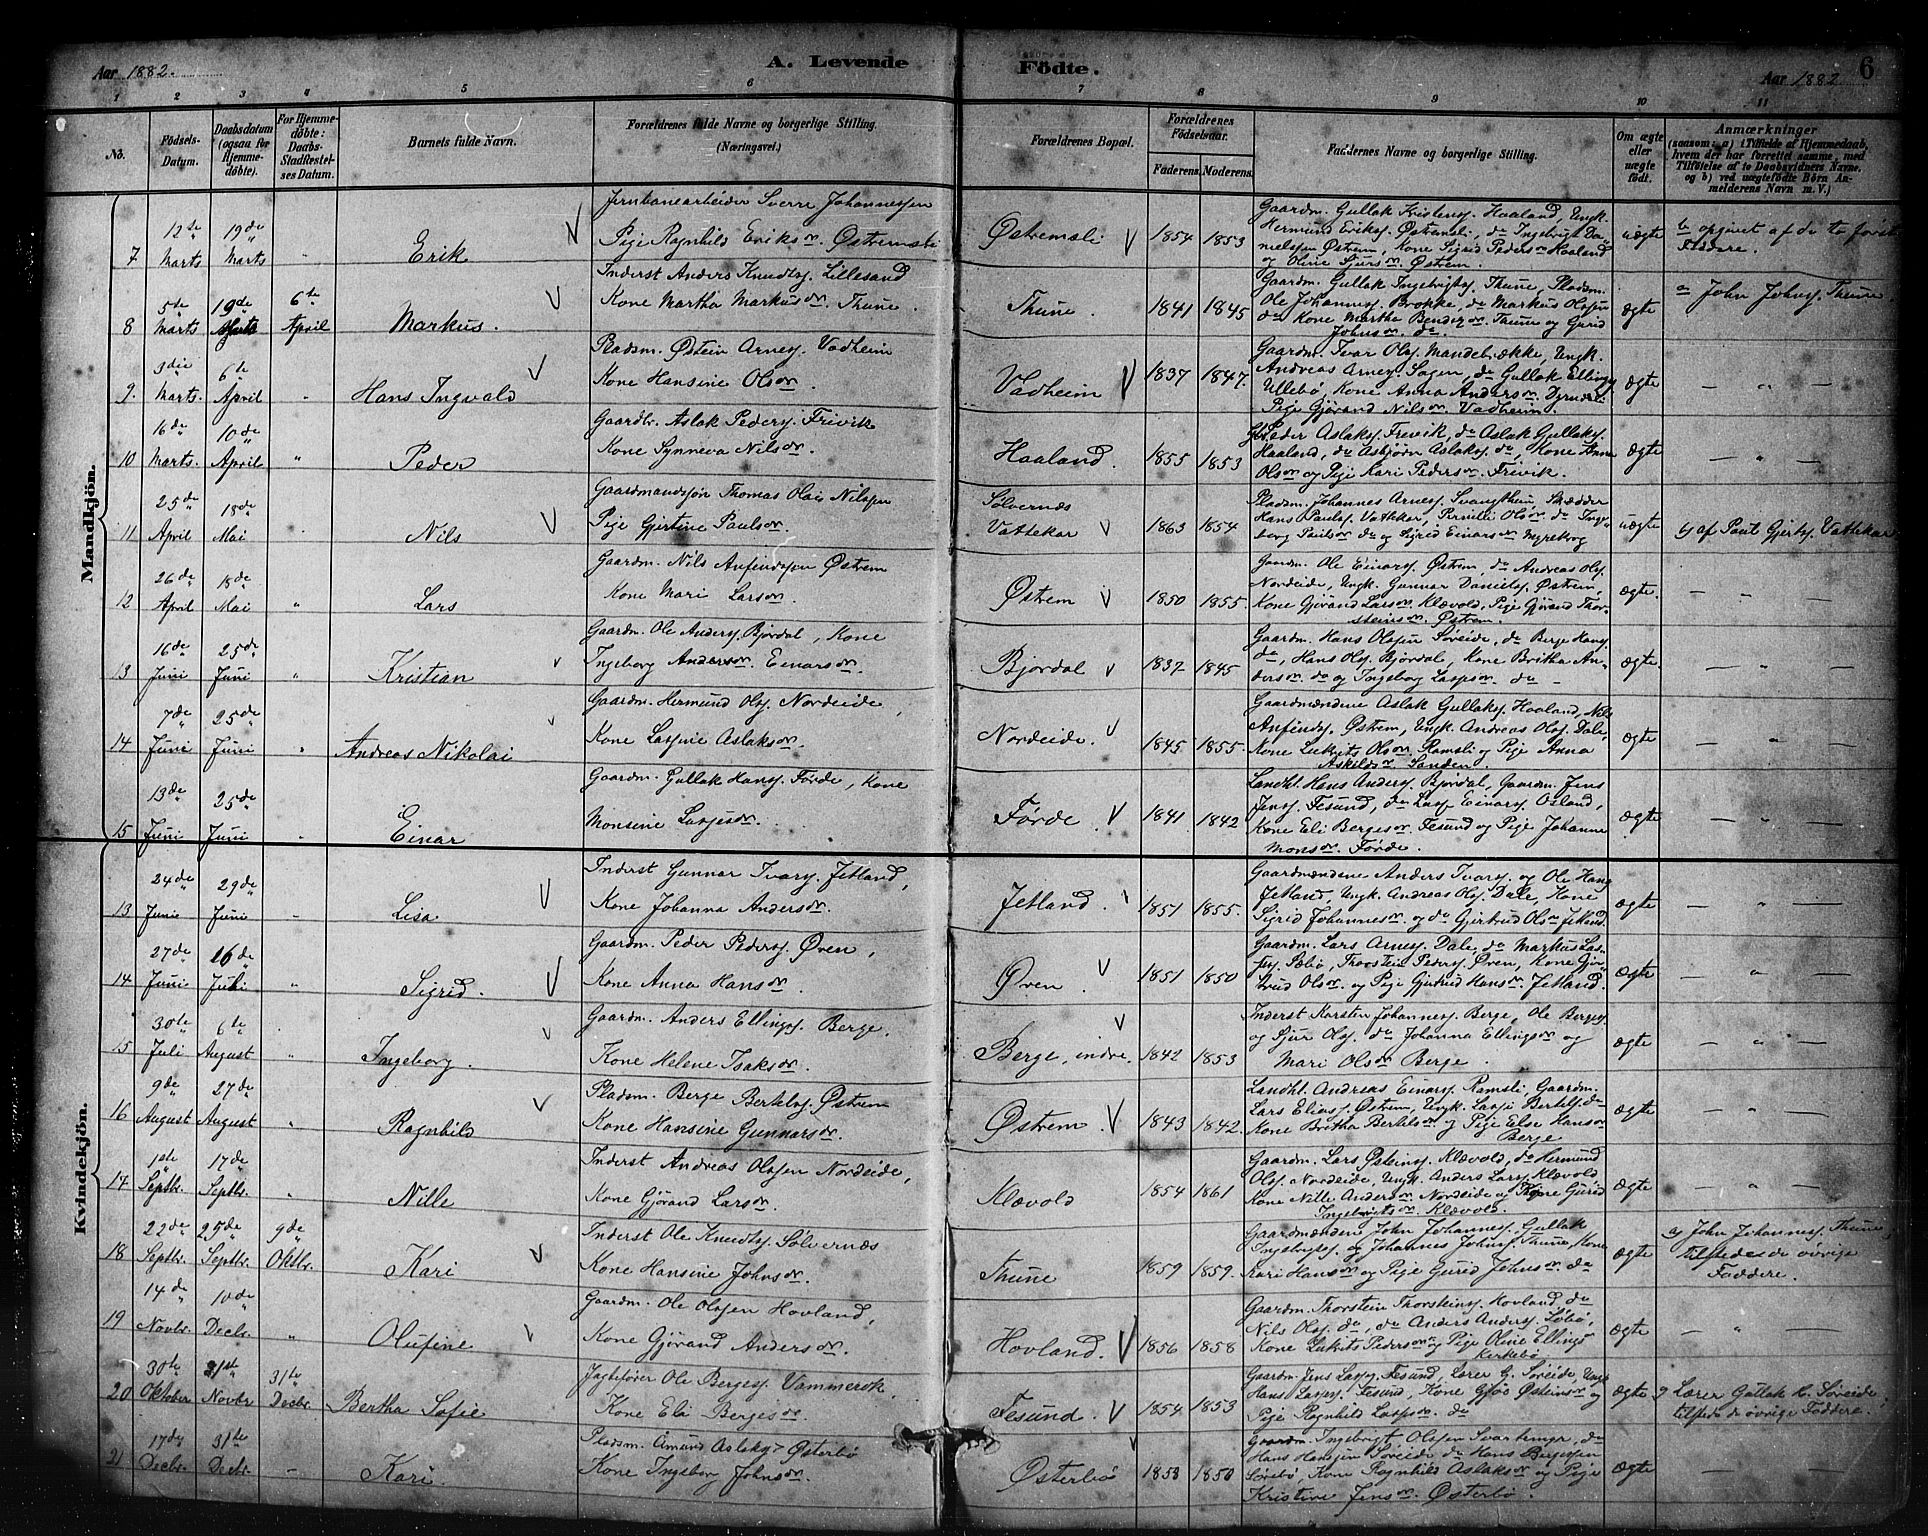 Aar 1882.
A. Levende Födte.
Aar 1882
6
1 2 3 4 5 6 7 8 9 10 11
No.
Födsels-Datum.
Daabsdatum (ogsaa for Hjemmedöbte).
For Hjemmedöbte: Daabs-Stadfæstelses Datum.
Barnets fulde Navn.
Forældrenes fulde Navne og borgerlige Stilling. (Næringsvei.)
Forældrenes Bopæl.
Forældrenes Födselsaar.
Faderens. Moderens.
Faddernes Navne og borgerlige Stilling.
Om ægte eller uægte födt.
Anmærkninger
(saasom: a) i Tilfælde af Hjemmedaab, hvem der har forrettet samme, med Tilföielse af to Daabsvidners Navne. og b) ved uægtefödte Börn Anmelderens Navn m. V.)
Mandkjön.
7 12te Marts 19de Marts " Erik
Jernbanearbeider Sverre Johannessen
Pige Ragnhild Eriksdr. Østremsli
Østremsli 1854 1853
Gaardm. Gullak Kristens. Haaland, Ungk.
Hermund Eriks. Østremsli, do Ingebrigt Danielsen Østrem, Kone Sigrid Pedersdr Haaland
og Oline Sjursdr. Østrem.
uægte
b opgivet af de to første Faddere.
8 5te Marts 19de Marts 6te April Markus.
Inderst Anders Knudts. Lillesand
Kone Martha Markusdr. Thune.
Thune 1841 1845
Gaardm. Gullak Ingebrigts. Thune, Pladsm.
Ole Johannes. Brokke, do Markus Olsen
do Kone Martha Bendixdr. Thune og Gurid
Johnsdr. do
ægte
a John Johns. Thune.
9. 3die Marts. 6te April " Hans Ingvald
Pladsm. Østein Arnes. Vadheim
Kone Hansine Olsdr.
Vadheim 1837 1847.
Gaardm. Ivar Ols. Mandelbække, Ungk.
Andreas Arnes. Sagen, do Gullak Ellings.
Ullebø, Kone Anna Andersdr. Dyrndali
Pige Gjørand Nilsdr. Vadheim.
ægte — " —
10 16de Marts. 10de April " Peder
Gaardbr. Aslak Peders. Frivik
Kone Synneva Nilsdr.
Haaland. 1855 1853
Peder Aslaks. Frevik, do Aslak Gullaks.
Haaland, do Asbjørn Aslaks. do, Kone Anne
Olsdr og Pige Kari Pedersdr. Frevik.
ægte — " —
11 25de April 18de Mai " Nils
Gaardmandssøn Thomas Olais Nilssen
Pige Gjertine Paulsdr.
Sølvernæs
Vattekar 1863 1854
Pladsm. Johannes Arnes. Svangtheim, Skrædder
Hans Pauls. Vattekar, Pernille Olsdr. do Ingeborg Paulsdr do og Sigrid Einarsdr Myreborg
uægte
b) af Paul Gjerts. Vattekar
12 26de April 18de Mai " Lars
Gaardm. Nils Anfindsen Østrem
Kone Mari Larsdr.
Østrem 1850 1855.
Gaardm. Ole Einars. Østrem do Andreas Ols.
Nordeide, Ungk. Gunnar Daniels. Østrem,
Kone Gjørand Larsdr. Klævold, Pige Gjørand Thorsteinsdr. Østrem.
ægte. — " —
13 16de Juni 25de Juni " Kristian
Gaardm. Ole Anders. Bjordal, Kone
Ingeborg Andersdr. Einarsdr.
Bjordal 1837 1845
Gaardm. Hans Olsen Søreide, do Berge Hans.
do, Hans Ols. Bjordal, Kone Britha Andersdr. do og Ingeborg Lassesdr. do —
ægte — " —
14 7de Juni 25de Juni " Andreas Nikolai
Gaardm. Hermund Ols. Nordeide,
Kone Lassine Aslaksdr.
Nordeide. 1845 1855.
Gaardmændene Aslak Gullaks. Haaland, Nils
Anfinds. Østrem, Ungk. Andreas Ols. Dale,
Kone Lukrits Olsdr. Ramsli og Pige Anna
Askildsdr. Sanden.
ægte — " —
15 13de Juni 25de Juni " Einar
Gaardm. Gullak Hans. Førde, Kone
Monsine Lassesdr.
Førde. 1841. 1842
Landhl. Hans Anders. Bjordal, Gaardm. Jens
Jens. Fesund, do Lasse Einars. Osland,
Kone Eli Bergesdr. Fesund og Pige Johanne
Monsdr. Førde.
ægte — " —
Kvindekjön.
13 24de Juni 29de Juni " Lisa
Inderst Gunnar Ivars. Jetland,
Kone Johanna Andersdr.
Jetland. 1851 1855.
Gaardmændene Anders Ivars. og Ole Hans.
Jetland, Ungk. Andreas Ols. Dale, Kone
Sigrid Johannesdr. og do Gjertrud Olsdr Jetland.
ægte — " —
14 27de Juni 16de Juli " Sigrid.
Gaardm. Peder Peders. Øven,
Kone Anna Hansdr.
Øven. 1851 1850
Gaardm. Lars Arnes. Dale, do Markus Lasses. Sæbø, Thorstein Peders. Øven, Kone Gjørtrud Olsdr. og Pige Gjertrud Hansdr Jetland.
ægte — " —
15 30te Juli 6te August " Ingeborg.
Gaardm. Anders Ellings. Berge.
Kone Helene Isaksdr.
Berge, indre 1842 1853
Inderst Karsten Johannes. Berge, Ole Berges.
og Sjur Ols. do Johanna Ellingsdr og
Mari Olsdr Berge.
ægte — " —
16 9de August 27de August " Ragnhild
Pladsm. Berge Bertels. Østrem
Kone Hansine Gunnarsdr.
Østrem 1843 1842.
Landhl. Andreas Einars. Ramsli Gaardm.
Lars Elias. Østrem, Ungk. Lasse Bertels. do
Kone Britha Bertelsdr og Pige Else Hansdr
Berge
ægte — " —
17 1ste Septbr. 17de Septbr. " Nille
Inderst Andreas Olsen Nordeide,
Kone Gjørand Larsdr.
Klævold 1854 1861
Gaardm. Lars Østeins. Klævold, do Hermund
Ols. Nordeide, Ungk. Anders Lars. Klævold
Kone Nille Andersdr. Nordeide og Kone Gurid
Ingebrigtsdr. Klævold.
ægte — " —
18 22de Septbr. 25de Septbr. 9de Oktbr. Kari
Inderst Ole Knudts. Sølvernæs
Kone Hansine Johnsdr.
Thune 1859 1859.
Gaardmændene John Johannes. Gullak
Ingebrigts. og Johannes Johns. Thune, Kone
Kari Hansdr og Pige Gurid Johnsdr. do
ægte
a) John Johannes. Thune,
tilstede de øvrige
Faddere.
19 14de Novbr. 10de Decbr. " Olufine
Gaardm. Ole Olsen Hovland,
Kone Gjørand Andersdr.
Hovland. 1856 1858
Gaardm. Thorstein Thorsteins. Hovland do
Nils Ols. do, do Anders Anders. Søbø,
Kone Lukrits Pedersdr og Pige Oline Ellingsdr
Kirkebø
ægte — " —
20 30te Oktober 21st Novbr 31te Decbr. Bertha Sofie
Jagtefører Ole Berges. Vammervik
Kone Eli Bergesdr.
Fesund. 1854 1853
Gaardm. Jens Lasses. Fesund, Lærer G. Søreide, Ungk
Hans Lasses. Fesund, Kone Gjøa Østeinsdr og
Pige Ragnhild Lassesdr. do
ægte
a Lærer Gullak H. Søreide
tilstede de øvrige Faddere.
21 17de Decbr. 31te Decbr. — Kari.
Pladsm. Amund Aslaks. Østerbø
Kone Ingeborg Johnsdr.
Østerbø 1853 1850
Gaardm. Ingebrigt Olsen Svartunge, do
Hans Hansen Søreide do Hans Bergesen
Sørebø, Kone Ragnhild Aslaksdr og Pige
Kristine Jensdr. Østerbø.
ægte — " —